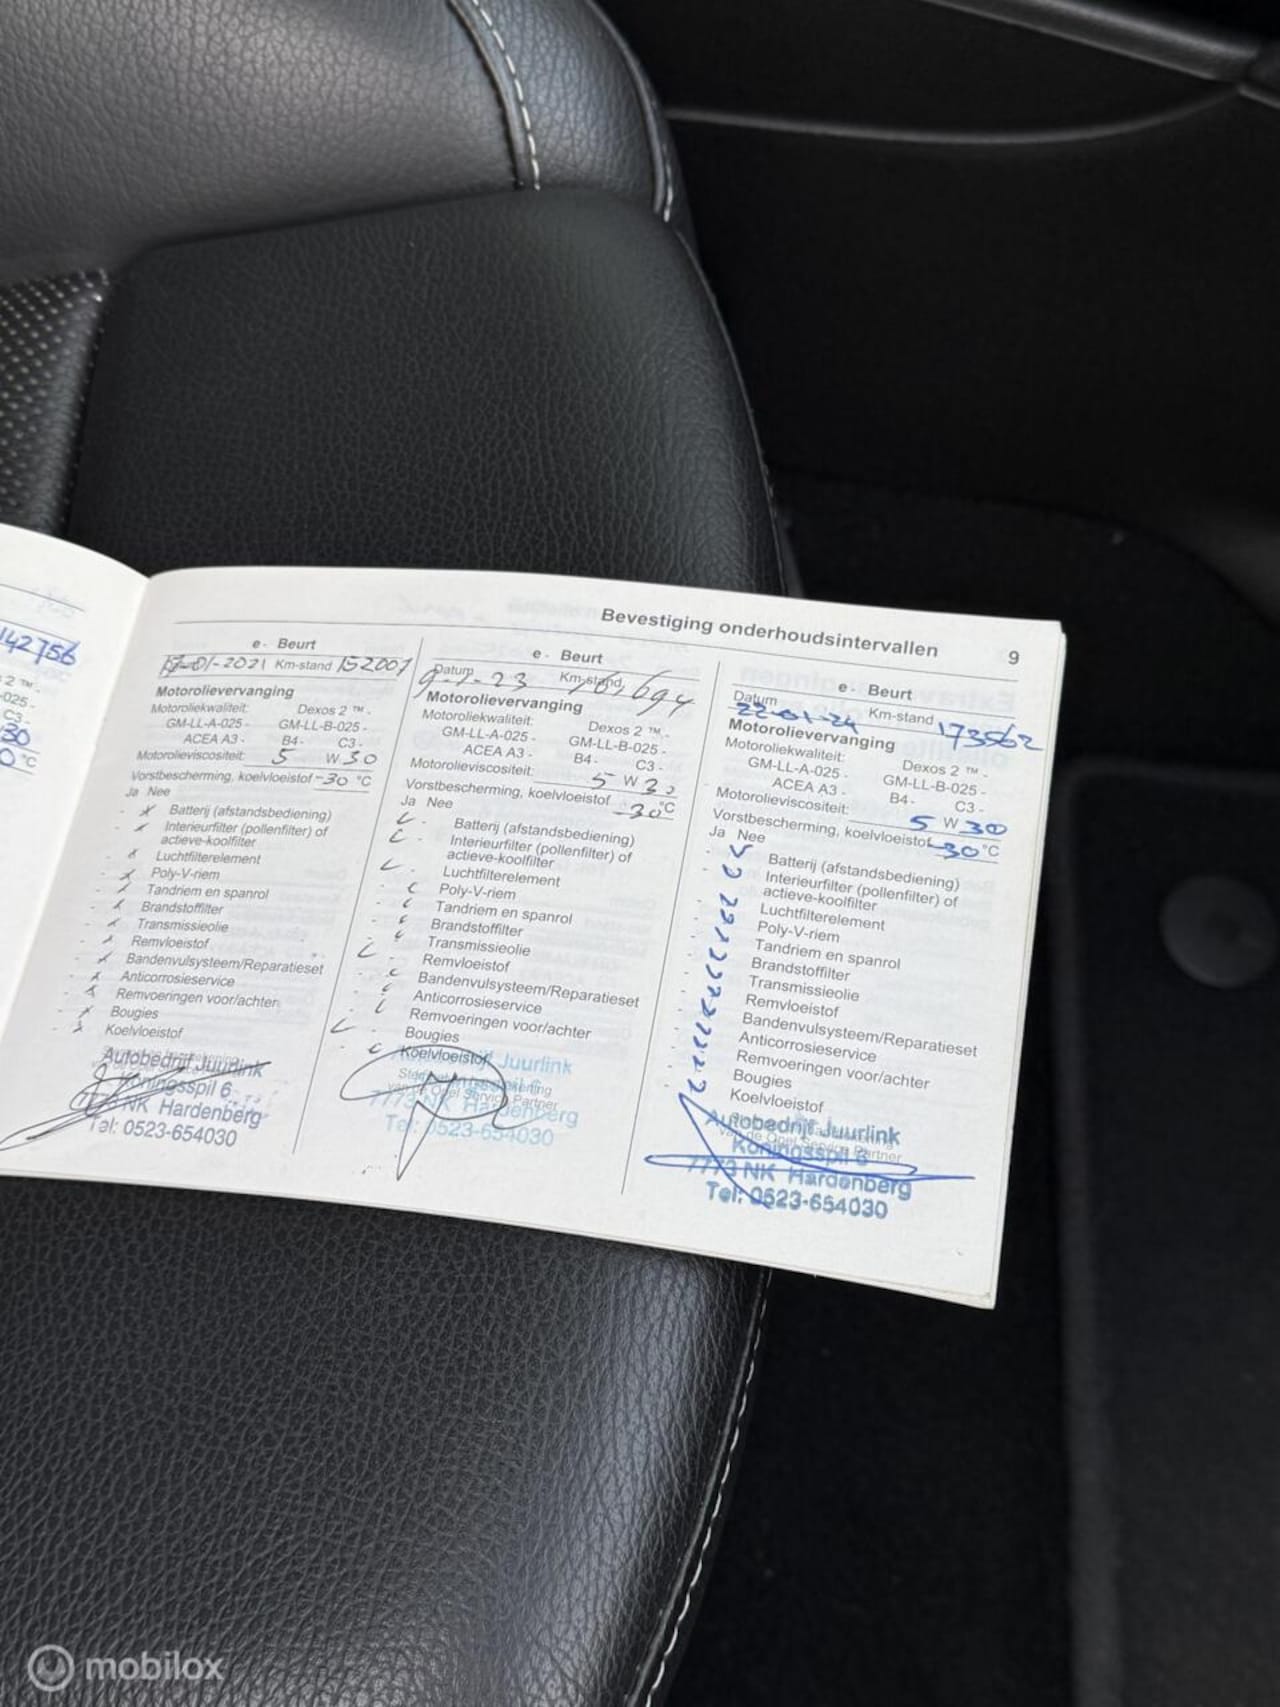 142756
2 ™ -
-025 -
C3 -
30
0 °C
Bevestiging onderhoudsintervallen 9
e - Beurt
-01-2021 Km-stand 152001
Motorolievervanging
Motoroliekwaliteit: Dexos 2 ™ -
GM-LL-A-025 - GM-LL-B-025 -
ACEA A3 - B4 - C3 -
Motorolieviscositeit: 5 W 30
Vorstbescherming, koelvloeistof -30 °C
Ja Nee
Batterij (afstandsbediening)
Interieurfilter (pollenfilter) of
actieve-koolfilter
Luchtfilterelement
Poly-V-riem
Tandriem en spanrol
Brandstoffilter
Transmissieolie
Remvloeistof
Bandenvulsysteem/Reparatieset
Anticorrosieservice
Remvoeringen voor/achter
Bougies
Koelvloeistof
Autobedrijf Juurlink
Koningsspil 6
7773 NK Hardenberg
Tel: 0523-654030
e - Beurt
Datum 9-1-23 Km-stand
Motorolievervanging
Motoroliekwaliteit: Dexos 2 ™ -
GM-LL-A-025 - GM-LL-B-025 -
ACEA A3 - B4 - C3 -
Motorolieviscositeit: 5 W 30
Vorstbescherming, koelvloeistof -30 °C
Ja Nee
Batterij (afstandsbediening)
Interieurfilter (pollenfilter) of
actieve-koolfilter
Luchtfilterelement
Poly-V-riem
Tandriem en spanrol
Brandstoffilter
Transmissieolie
Remvloeistof
Bandenvulsysteem/Reparatieset
Anticorrosieservice
Remvoeringen voor/achter
Bougies
Koelvloeistof
Juurlink
van de Opel Service Partner
7773 NK Hardenberg
Tel: 0523-654030
e - Beurt
Datum 22-01-24 Km-stand 173562
Motorolievervanging
Motoroliekwaliteit: Dexos 2 ™ -
GM-LL-A-025 - GM-LL-B-025 -
ACEA A3 - B4 - C3 -
Motorolieviscositeit: 5 W 30
Vorstbescherming, koelvloeistof -30 °C
Ja Nee
Batterij (afstandsbediening)
Interieurfilter (pollenfilter) of
actieve-koolfilter
Luchtfilterelement
Poly-V-riem
Tandriem en spanrol
Brandstoffilter
Transmissieolie
Remvloeistof
Bandenvulsysteem/Reparatieset
Anticorrosieservice
Remvoeringen voor/achter
Bougies
Koelvloeistof
Autobedrijf Juurlink
van de Opel Service Partner
Koningsspil 6
7773 NK Hardenberg
Tel: 0523-654030
mobilox